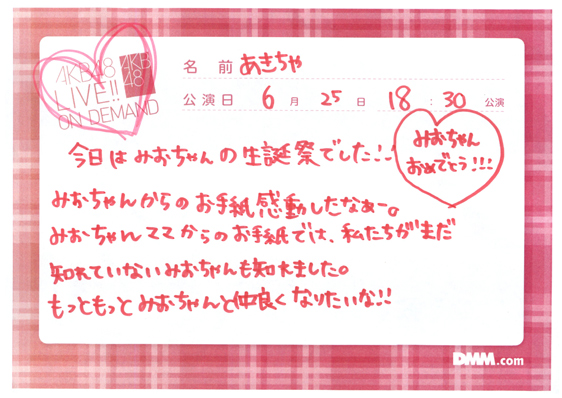 AKB48
LIVE!!
ON DEMAND
AKB
48
名前 あきちゃ
公演日 6月 25日 18:30 公演
みおちゃん
おめでとう!!!
今日はみおちゃんの生誕祭でした!!
みおちゃんからのお手紙感動したなぁー。
みおちゃんママからのお手紙では、私たちがまだ
知れていないみおちゃんも知れました。
もっともっとみおちゃんと仲良くなりたいな!!
DMM.com